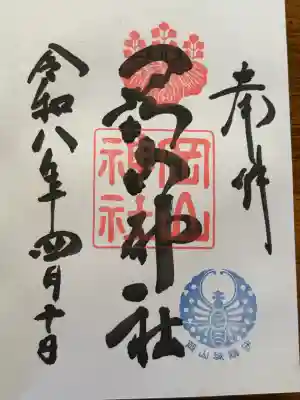 奉拝
岡山神社
岡山
神社
岡山城鎮守
令和八年四月十日